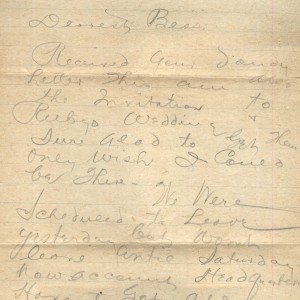 Dearest Bess:
Received your dandy
letter this am also
the Invitation to
Rubys Wedding &
Sure Glad to get them
only Wish I Could
be There. We Were
Scheduled to Leave
yesterday but wont
leave until Saturday
now account Headquarters